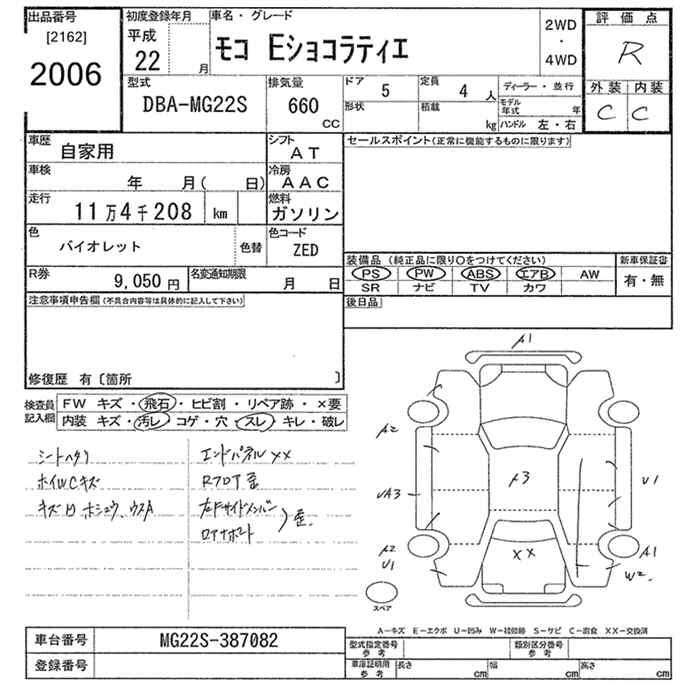 出品番号
[2162]
2006
初度登録年月
平成
22 月
車名・グレード
モコ Eショコラティエ
2WD
・
4WD
評価点
R
外装 内装
C C
型式
DBA-MG22S
排気量
660
CC
ドア 5
定員 4 人
形状
積載 kg
ディーラー・並行
モデル年式 年
ハンドル 左・右
車歴
自家用
シフト
AT
車検
年 月( 日)
冷房
AAC
走行
11万4千208 km
燃料
ガソリン
色
バイオレット
色替
色コード
ZED
R券
9,050 円
名変通知期限
月 日
セールスポイント(正常に機能するものに限ります)
装備品 (純正品に限り○をつけてください)
PS PW ABS エアB AW
SR ナビ TV カワ
新車保証書
有・無
後日品
注意事項申告欄(不具合内容等は具体的に記入して下さい)
修復歴 有〔箇所 〕
検査員記入欄
FW キズ・飛石・ヒビ割・リペア跡・×要
内装 キズ・汚レ・コゲ・穴・スレ・キレ・破レ
シートヘタリ
ホイWCキズ
エンドパネルXX
Rフロア歪
歪
A1
A2
UA3
A2
U1
A3
XX
U1
A1
W2
スペア
A―キズ E―エクボ U―凹み W―補修跡 S―サビ C―腐食 XX―交換済
車台番号
MG22S-387082
登録番号
型式指定番号
参考
類別区分番号
参考
車庫証明用
参考
長さ cm
幅 cm
高さ cm